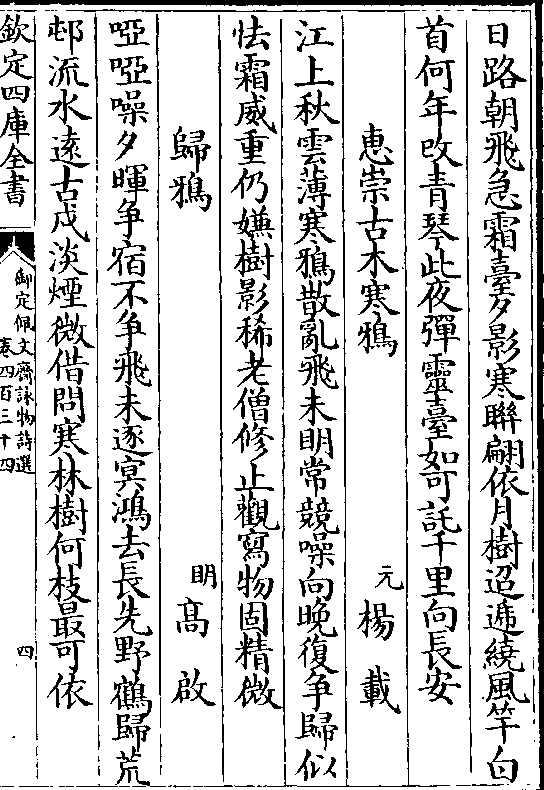 日路朝飛急霜臺夕影寒聯翩依月樹迢遞繞風竿白
首何年改青琴此夜彈靈臺如可託千里向長安
惠崇古木寒鴉 元 楊載
江上秋雲薄寒鴉散亂飛未明常競噪向晚復争歸似
怯霜威重仍嫌樹影稀老僧修止觀寫物固精微
歸鴉 明 高啟
啞啞噪夕暉争宿不争飛未逐冥鴻去長先野鶴歸荒
邨流水遠古戍淡煙微借問寒林樹何枝最可依
欽定四庫全書
御定佩文齋詠物詩選
卷四百三十四
四